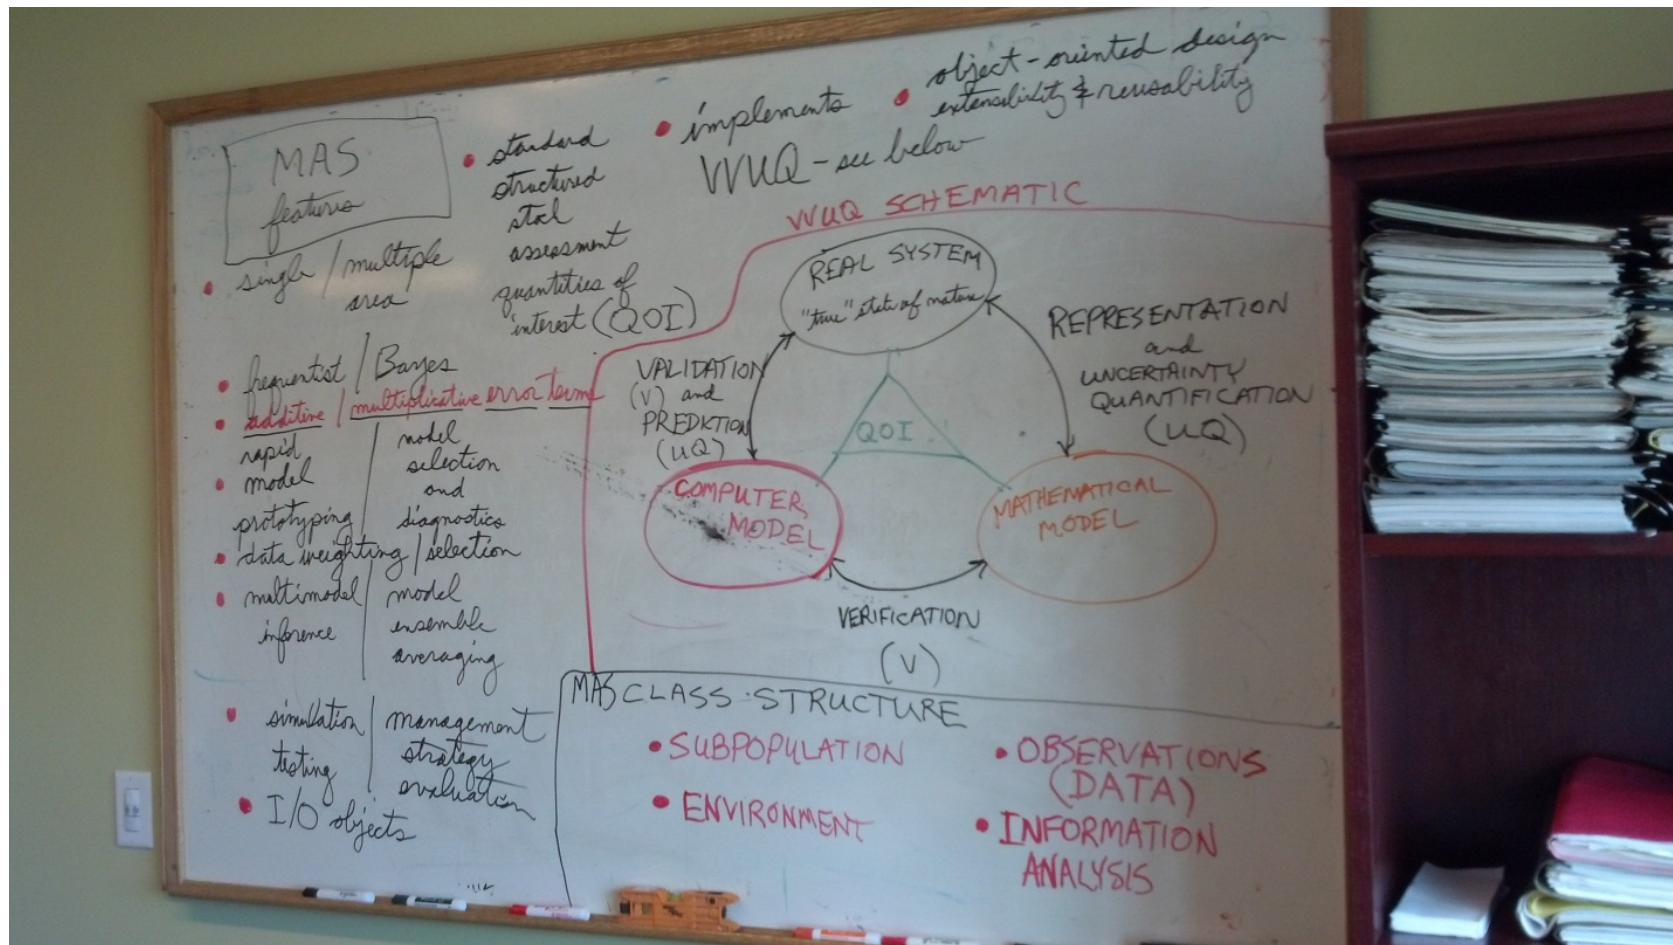 MAS
features
• single / multiple
area
• frequentist / Bayes
• additive / multiplicative error terms
• rapid
model
prototyping
model
selection
and
diagnostics
• data weighting / selection
• multimodel
inference
model
ensemble
averaging
• simulation
testing
management
strategy
evaluation
• I/O objects
• standard
structured
assessment
quantities of
interest (QOI)
• implements
VVUQ - see below
• object-oriented design
extensibility & reusability
VVUQ SCHEMATIC
REAL SYSTEM
"true" state of nature
VALIDATION
(V) and
PREDICTION
(UQ)
REPRESENTATION
and
UNCERTAINTY
QUANTIFICATION
(UQ)
QOI
COMPUTER
MODEL
MATHEMATICAL
MODEL
VERIFICATION
(V)
MAS CLASS STRUCTURE
• SUBPOPULATION
• ENVIRONMENT
• OBSERVATIONS
(DATA)
• INFORMATION
ANALYSIS